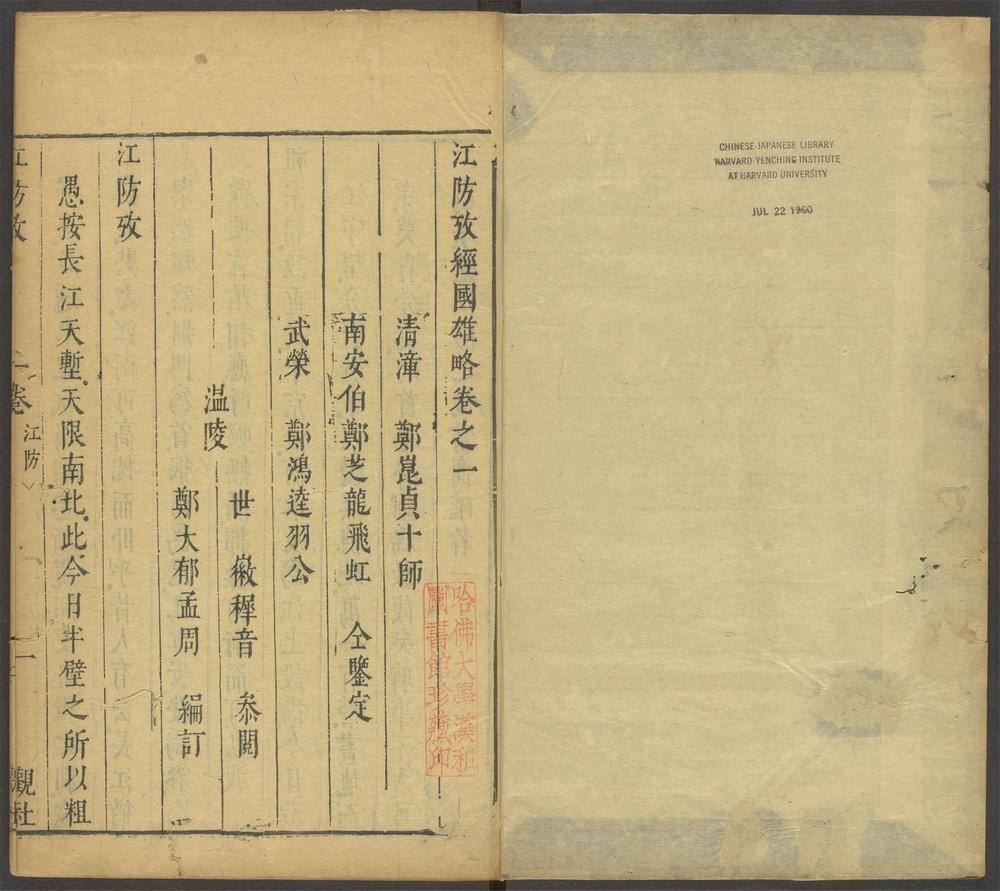 CHINESE-JAPANESE LIBRARY
HARVARD-YENCHING INSTITUTE
AT HARVARD UNIVERSITY
JUL 22 1960
江防攷經國雄略卷之一
清漳 鄭崑貞十師
南安伯鄭芝龍飛虹 仝鑒定
武榮 鄭鴻逵羽公
温陵
世徽穉音 叅閱
鄭大郁孟周 編訂
江防攷
愚按長江天塹天限南北此今日半壁之所以粗
江防攷
一卷
江防
一
觀社
哈佛大學漢和
圖書館珍藏印